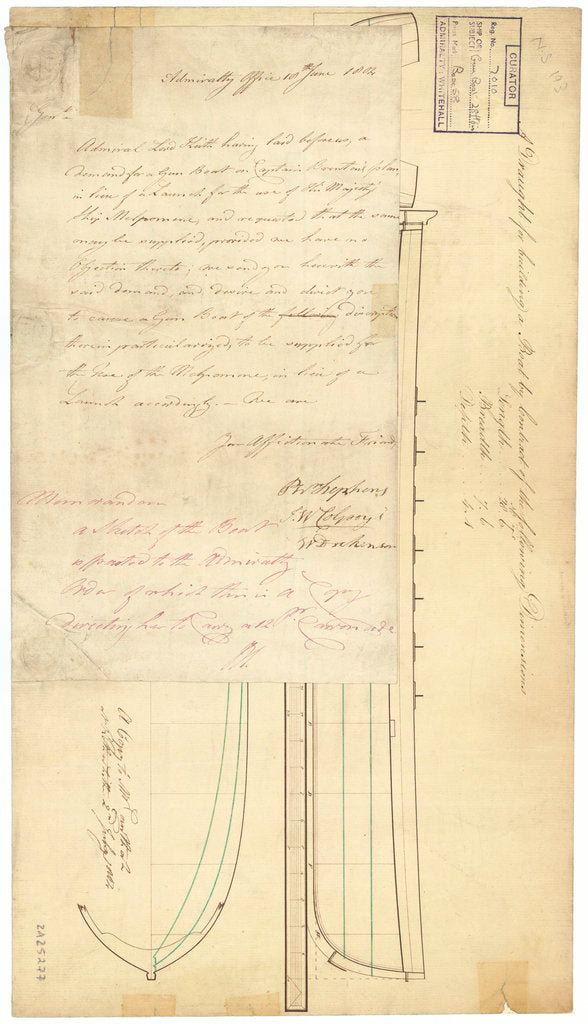 Admiralty Office 10th June 1802
Gent.n
Admiral Lord Keith having laid before us, a
demand for a Gun Boat on Captain plan
in lieu of a Launch for the use of His Majesty's
Ship Melpomene, and requested that the same
may be supplied, provided we have no
Objection thereto; we send you herewith the
said demand, and desire and direct you
to cause a Gun Boat of the following discription
therein particularized, to be supplied for
the Use of the Melpomene, in lieu of a
Launch accordingly. — We are
Your Affectionate Friends
P Stephens
J. W Colpoys
W Dickenson
Memorandum
a Sketch of the Boat
to the Admiralty
Order of which this is a Copy
Directing her to Carry a 12 Pr. Carronade
CURATOR
Reg. No. 7010
SHIP OR SUBJECT Gun Boat
Press Mark Box 58
ADMIRALTY: WHITEHALL
NS 103
A Draught for building a Boat by Contract of the following Dimensions
Length
Breadth 7. 6
Depth
A Copy to Mr
at 2nd July 1802
ZAZ5277